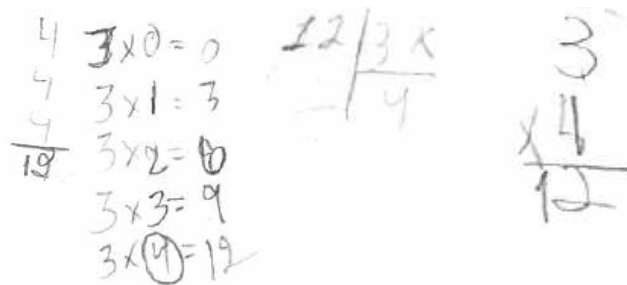 4
4
4
12
3x0=0
3x1=3
3x2=6
3x3=9
3x4=12
12 3 x
4
3
x 4
12